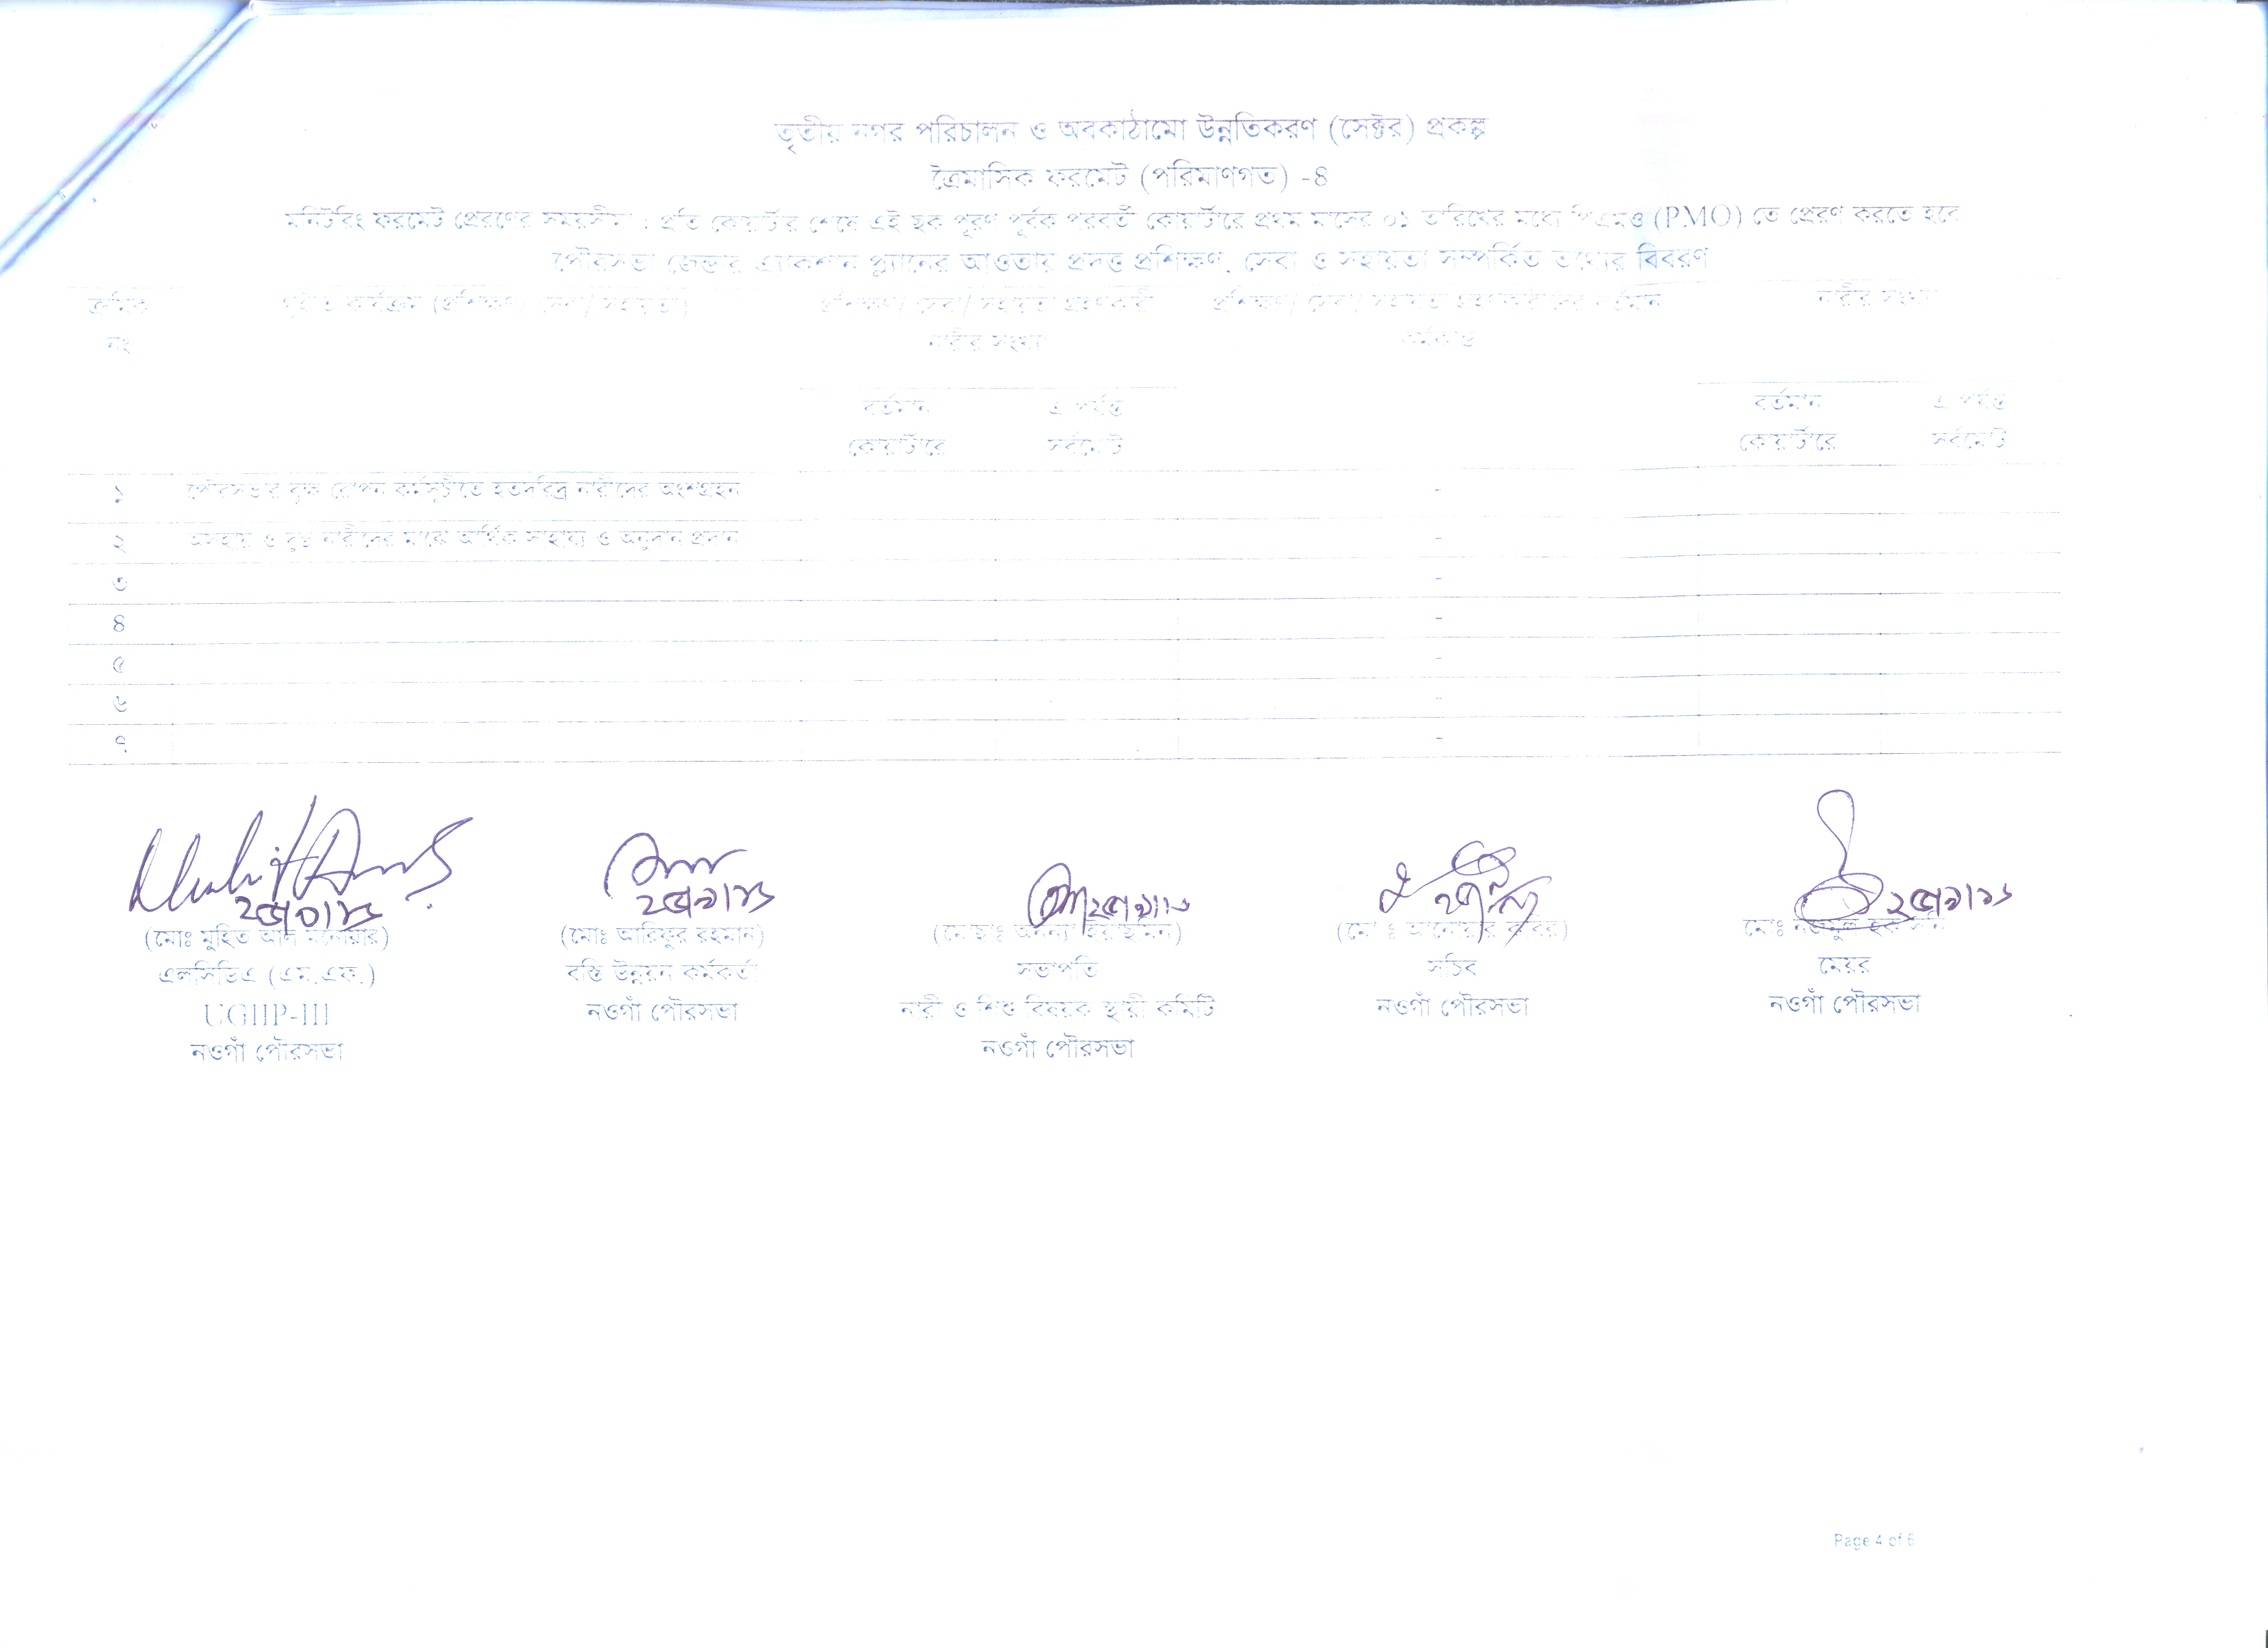 তৃতীয় নগর পরিচালন ও অবকাঠামো উন্নতিকরণ (সেক্টর) প্রকল্প
ত্রৈমাসিক ফরমেট (পরিমাণগত) -৪
মনিটরিং ফরমেট প্রেরণের সময়সীমা : প্রতি কোয়ার্টার শেষে এই ছক পূরণ পূর্বক পরবর্তী কোয়ার্টারে প্রথম মাসের ০১ তারিখের মধ্যে পিএমও (PMO) তে প্রেরণ করতে হবে
পৌরসভা জেন্ডার এ্যাকশন প্ল্যানের আওতায় প্রদত্ত প্রশিক্ষণ, সেবা ও সহায়তা সম্পর্কিত তথ্যের বিবরণ
ক্রমিক নং
গৃহীত কার্যক্রম (প্রশিক্ষণ/ সেবা/ সহায়তা)
প্রশিক্ষণ/ সেবা/ সহায়তা গ্রহণকারী নারীর সংখ্যা
প্রশিক্ষণ/ সেবা/ সহায়তা বর্তমান কর্মকান্ড
নারীর সংখ্যা
বর্তমান কোয়ার্টারে
এ পর্যন্ত সর্বমোট
বর্তমান কোয়ার্টারে
এ পর্যন্ত সর্বমোট
১ পৌরসভার বৃক্ষ রোপন কর্মসূচীতে হতদরিদ্র নারীদের অংশগ্রহন -
২ অসহায় ও দুস্থ নারীদের মাঝে আর্থিক সাহায্য ও অনুদান প্রদান -
৩ -
৪ -
৫ -
৬ -
৭ -
(মোঃ মুহিত আল)
এলসিডিএ (এম.এফ.)
UGIIP-III
নওগাঁ পৌরসভা
(মোঃ আরিফুর রহমান)
বস্তি উন্নয়ন কর্মকর্তা
নওগাঁ পৌরসভা
সভাপতি
নারী ও শিশু বিষয়ক স্থায়ী কমিটি
নওগাঁ পৌরসভা
সচিব
নওগাঁ পৌরসভা
মোঃ
মেয়র
নওগাঁ পৌরসভা
Page 4 of 6